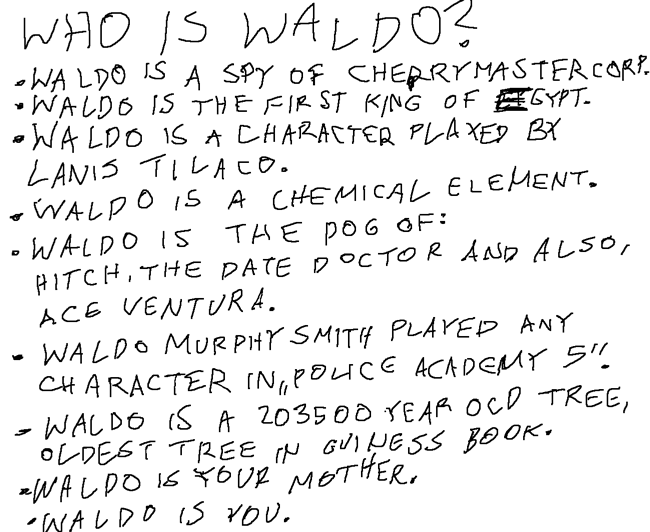 WHO IS WALDO?
• WALDO IS A SPY OF CHERRYMASTERCORP.
• WALDO IS THE FIRST KING OF EGYPT.
• WALDO IS A CHARACTER PLAYED BY
LANIS TILACO.
• WALDO IS A CHEMICAL ELEMENT.
• WALDO IS THE DOG OF:
HITCH, THE DATE DOCTOR AND ALSO,
ACE VENTURA.
• WALDO MURPHY SMITH PLAYED ANY
CHARACTER IN „POLICE ACADEMY 5".
• WALDO IS A 203500 YEAR OLD TREE,
OLDEST TREE IN GUINESS BOOK.
• WALDO IS YOUR MOTHER.
• WALDO IS YOU.